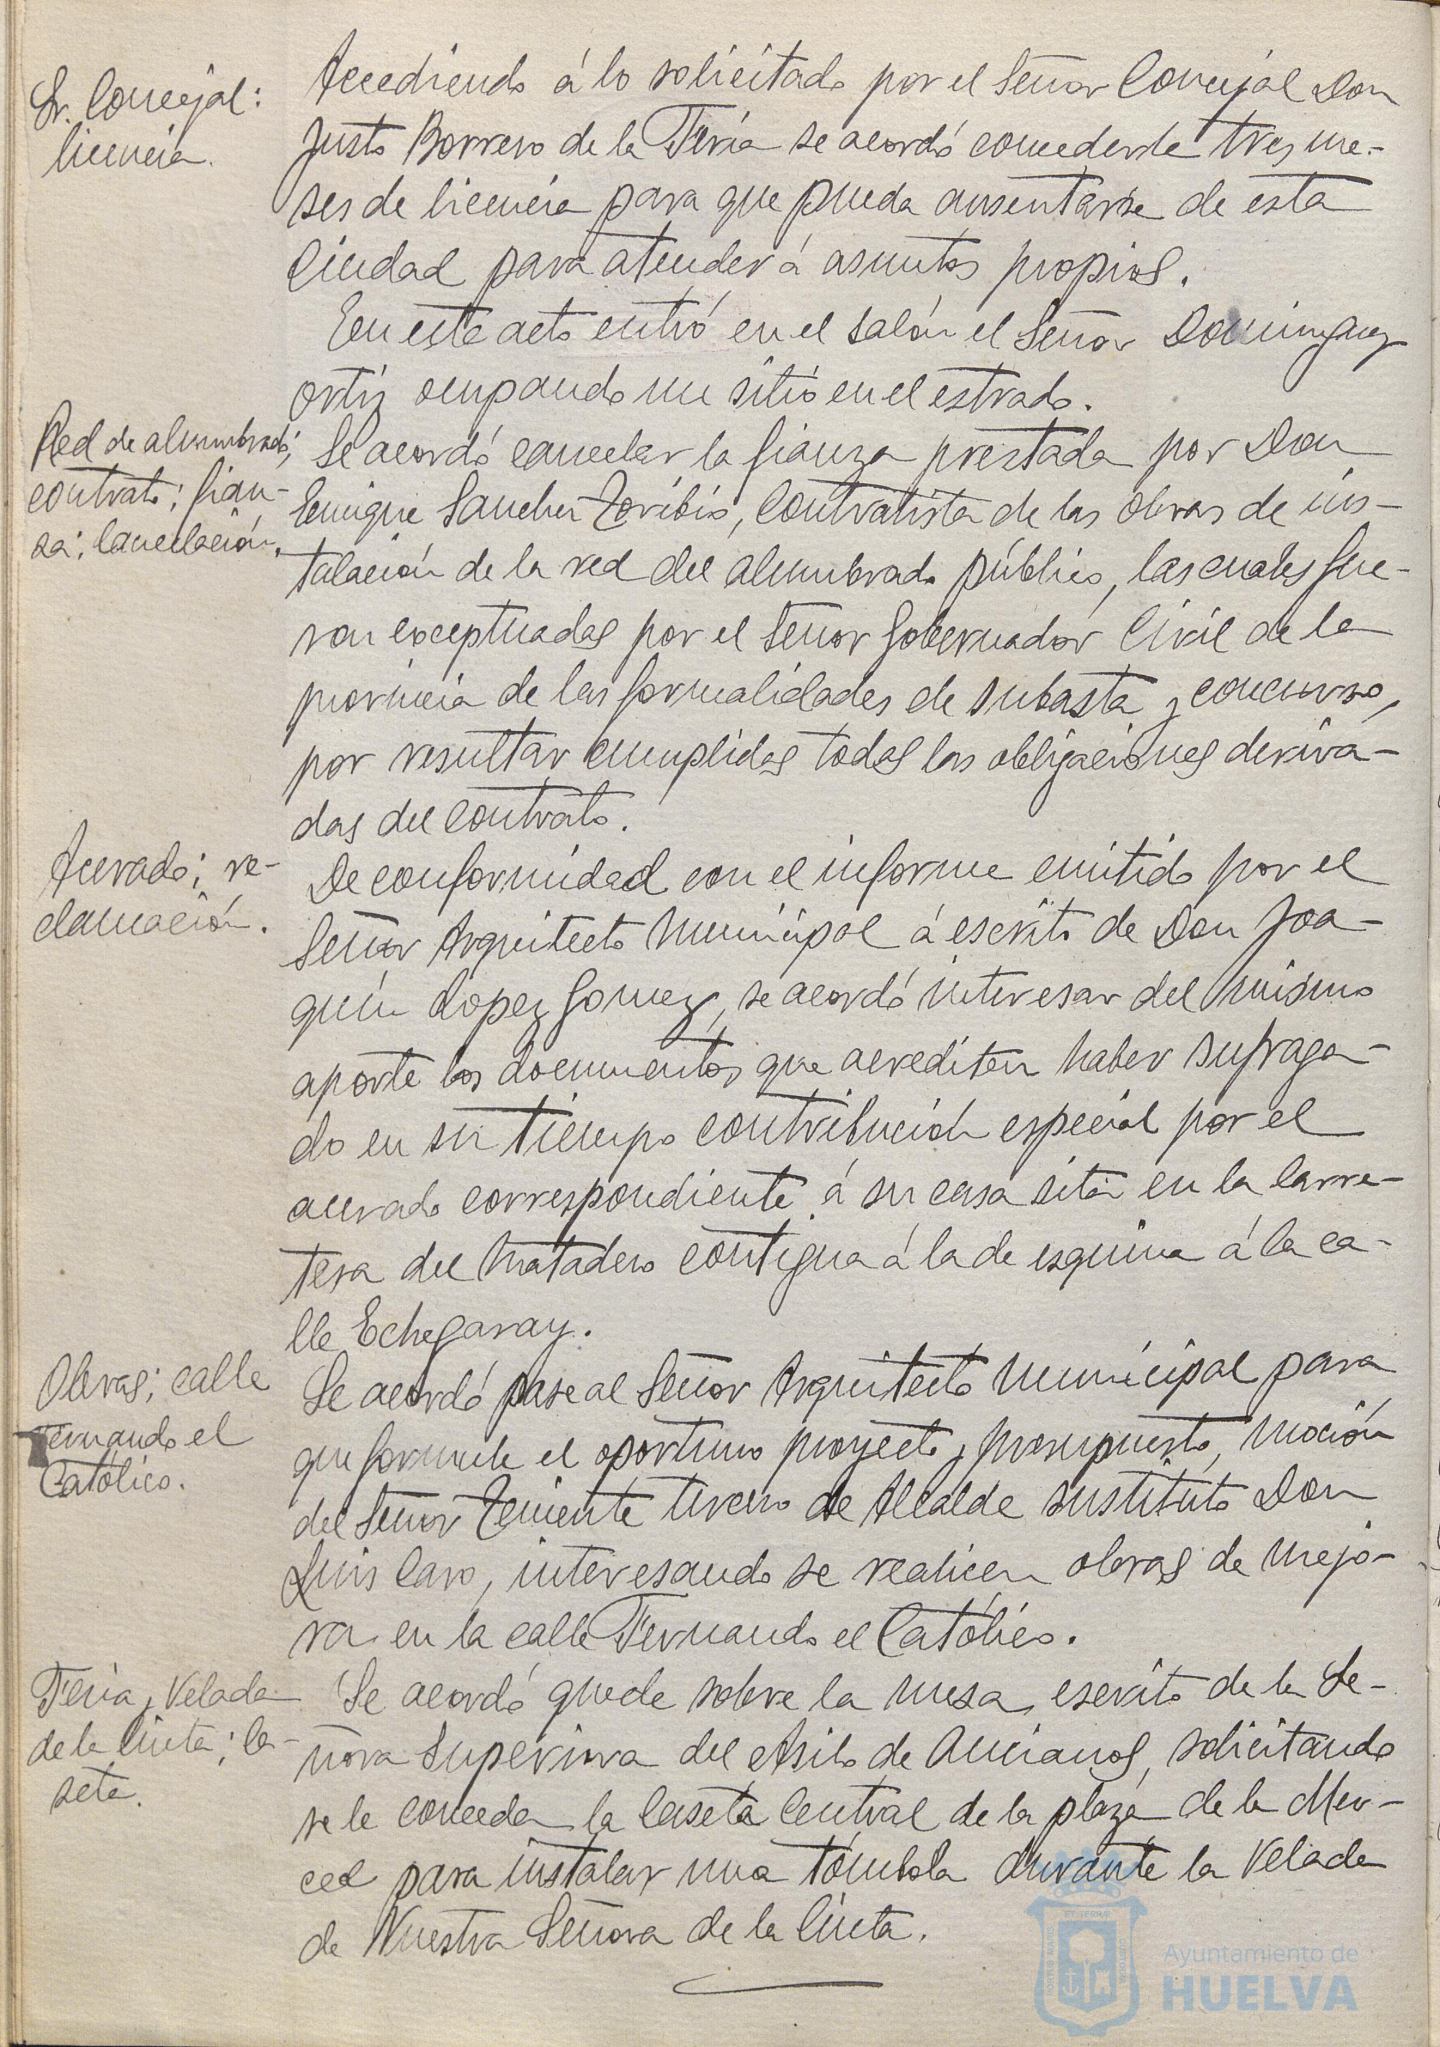 Sr. Concejal:
licencia.
Accediendo á lo solicitado por el Señor Concejal Don
Justo Borrero de la Feria se acordó concederle tres me-
ses de licencia para que pueda ausentarse de esta
Ciudad para atender á asuntos propios.
En este acto entró en el salón el Señor Dominguez
Ortiz ocupando un sitio en el estrado.
Red de alumbrado;
contrato; fian-
za; cancelación.
Se acordó cancelar la fianza prestada por Don
Enrique Sanchez Toribio, contratista de las obras de ins-
talación de la red del alumbrado público, las cuales fue-
ron exceptuadas por el Señor Gobernador Civil de la
provincia de las formalidades de subasta y concurso,
por resultar cumplidas todas las obligaciones deriva-
das del contrato.
Acerado; re-
clamación.
De conformidad con el informe emitido por el
Señor Arquitecto Municipal á escrito de Don Joa-
quin Lopez Gomez, se acordó interesar del mismo
aporte los documentos que acrediten haber sufraga-
do en su tiempo contribución especial por el
acerado correspondiente á su casa sita en la Carre-
tera del Matadero contigua á la de esquina á la ca-
lle Echegaray.
Obras; calle
Fernando el
Católico.
Se acordó pase al Señor Arquitecto Municipal para
que formule el oportuno proyecto y presupuesto, moción
del Señor Teniente tercero de Alcalde sustituto Don
Luis Caro, interesando se realicen obras de mejo-
ra en la calle Fernando el Católico.
Feria y Velada
de la Cinta; ca-
seta.
Se acordó quede sobre la mesa, escrito de la Se-
ñora Superiora del Asilo de Ancianos, solicitando
se le conceda la Caseta Central de la plaza de la Mer-
ced para instalar una tómbola durante la Velada
de Nuestra Señora de la Cinta.
Ayuntamiento de
HUELVA